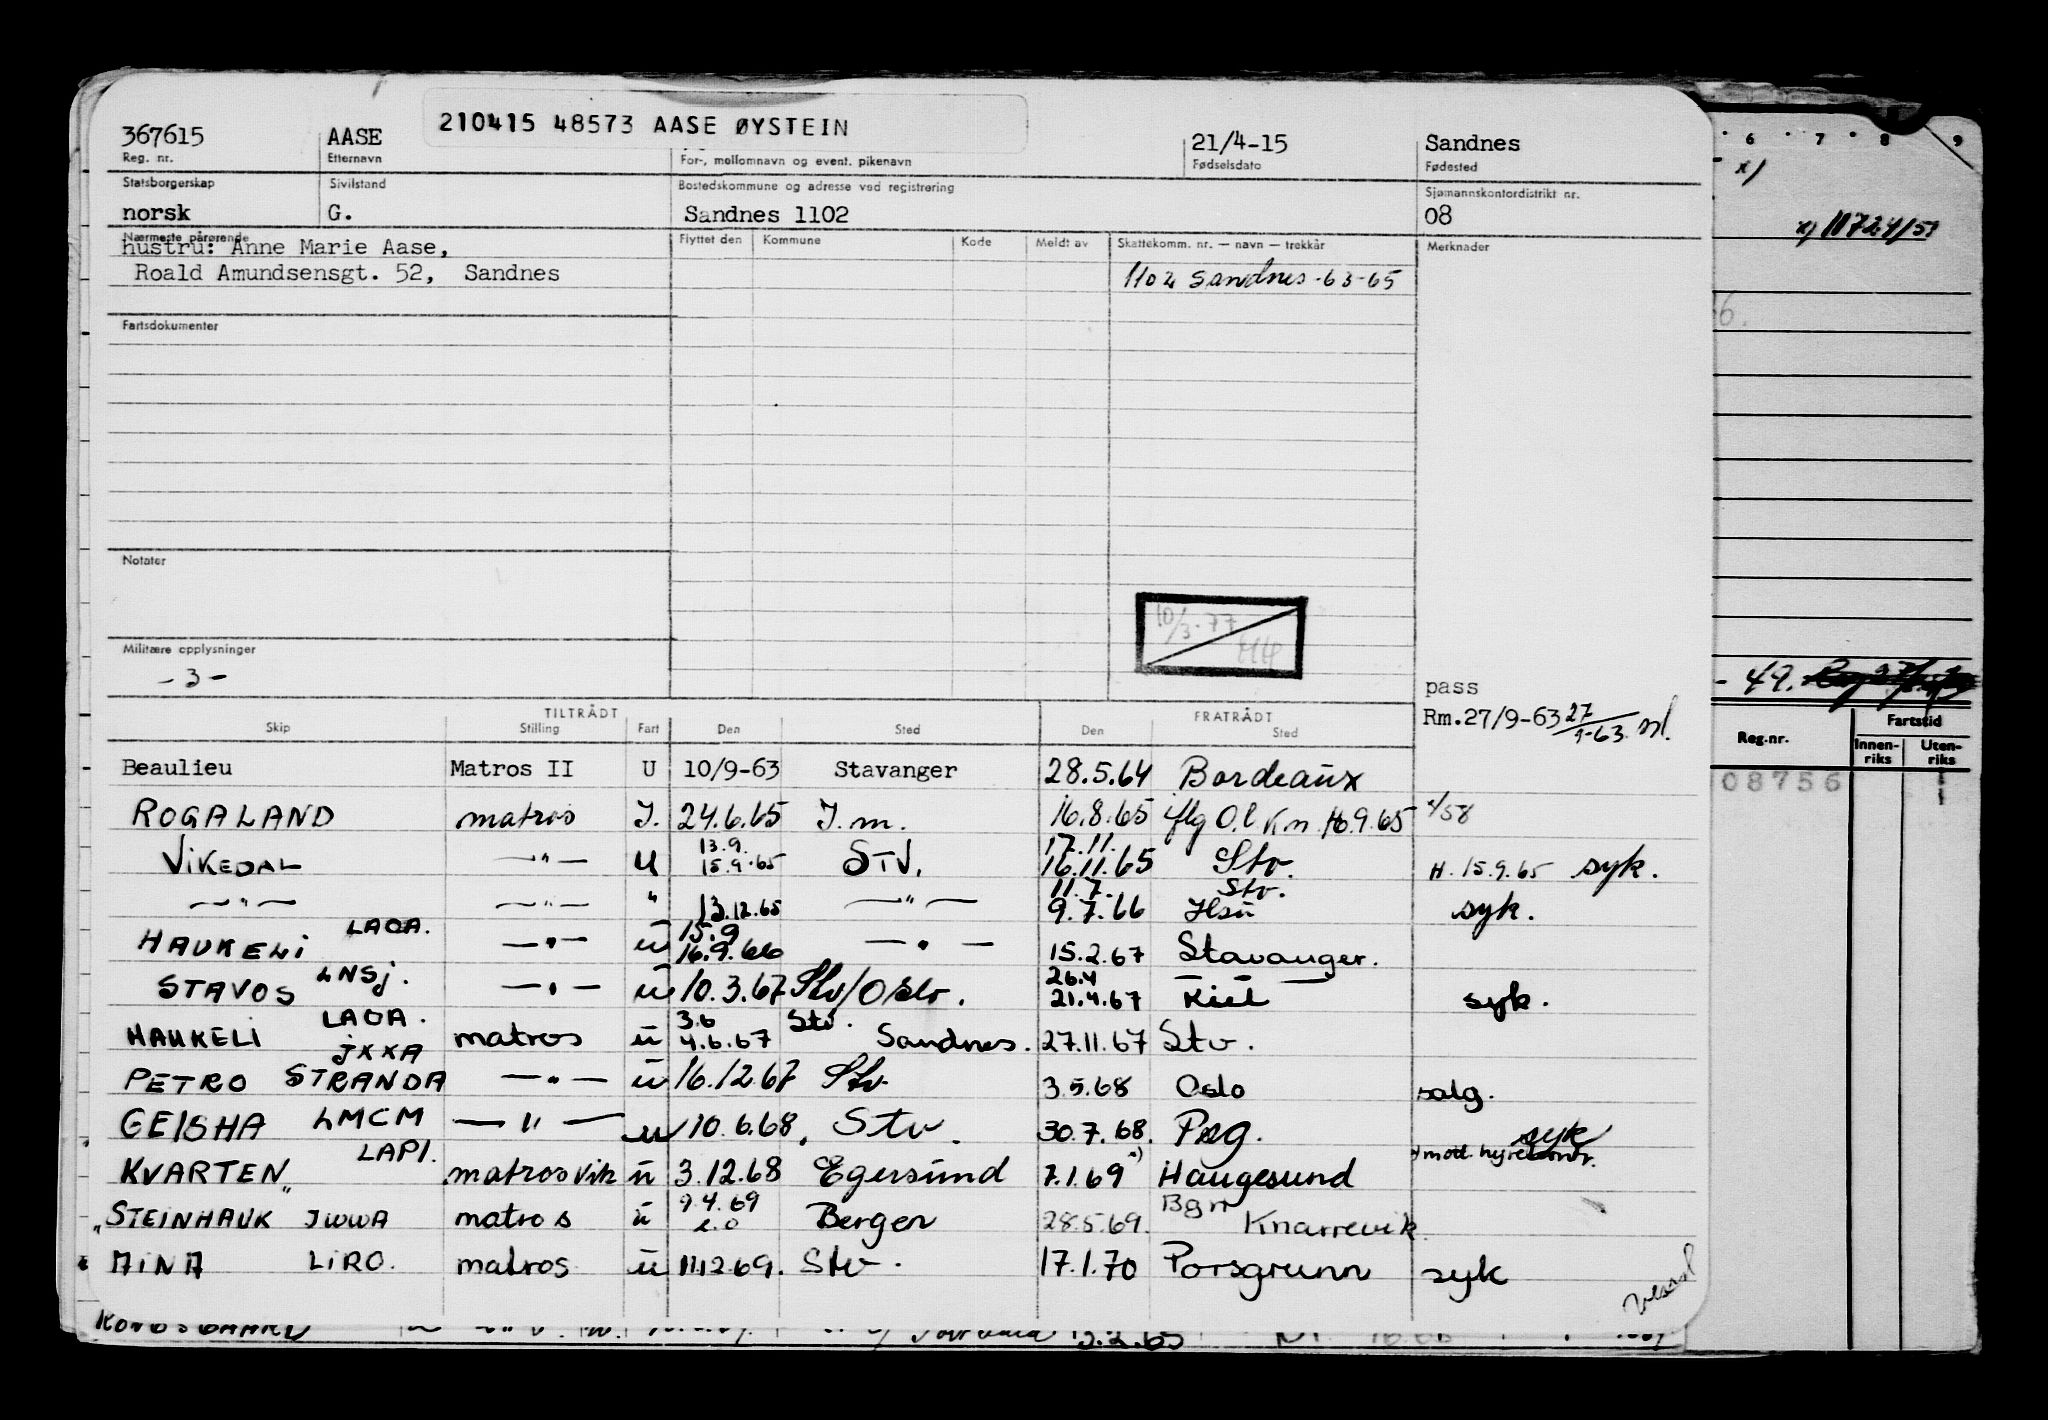 210415 48573 AASE ØYSTEIN
367615 AASE 21/4-15 Sandnes
Reg. nr. Etternavn For-, mellomnavn og event. pikenavn Fødselsdato Fødested
Statsborgerskap Sivilstand Bostedskommune og adresse ved registrering Sjømannskontordistrikt nr.
norsk G. Sandnes 1102 08
Nærmeste pårørende Flyttet den Kommune Kode Meldt av Skattekomm. nr. — navn — trekkår Merknader
hustru: Anne Marie Aase,
Roald Amundsensgt. 52, Sandnes 1102 Sandnes -63-65
Fartsdokumenter
Notater
10/3-77
Militære opplysninger
-3-
pass
Rm.27/9-63 27/9-63
TILTRÅDT FRATRÅDT
Skip Stilling Fart Den Sted Den Sted
Beaulieu Matros II U 10/9-63 Stavanger 28.5.64 Bordeaux
ROGALAND matros I. 24.6.65 I.m. 16.8.65 iflg O.l Kn. 16.9.65 /58
VIKEDAL —"— U 13.9. 15.9.65 STV. 17.11. 16.11.65 Stv. H. 15.9.65 syk.
—"— —"— " 13.12.65 —"— 11.7. 9.7.66 Stv. syk.
HAUKELI LAOA. —"— u 15.9 16.9.66 —"— 15.2.67 Stavanger.
STAVOS LNSJ. —"— u 10.3.67 Stv/Oslo. 26.4 21.4.67 Kiel syk.
HAUKELI LAOA. matros u 3.6 4.6.67 Stv. Sandnes. 27.11.67 Stv.
PETRO STRANDA JXXA —"— u 16.12.67 Stv 3.5.68 Oslo salg.
GEISHA LMCM —"— u 10.6.68. Stv. 30.7.68. Psg. syk
KVARTEN LAPI. matros vik u 3.12.68 Egersund 7.1.69 x) Haugesund
"STEINHAUK JWWA matros u 9.4.69 Bergen 28.5.69. Bgn Knarrevik.
AINA LIRO. matros u 11.12.69. Stv. 17.1.70 Porsgrunn syk
6 7 8 9
x)
x) 10724/51
- 49.
Reg.nr. Fartstid
Innen-riks Uten-riks
08756
13.2.63